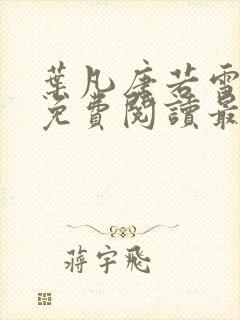 葉凡唐若雪
免費閱讀最
蔣宇飛